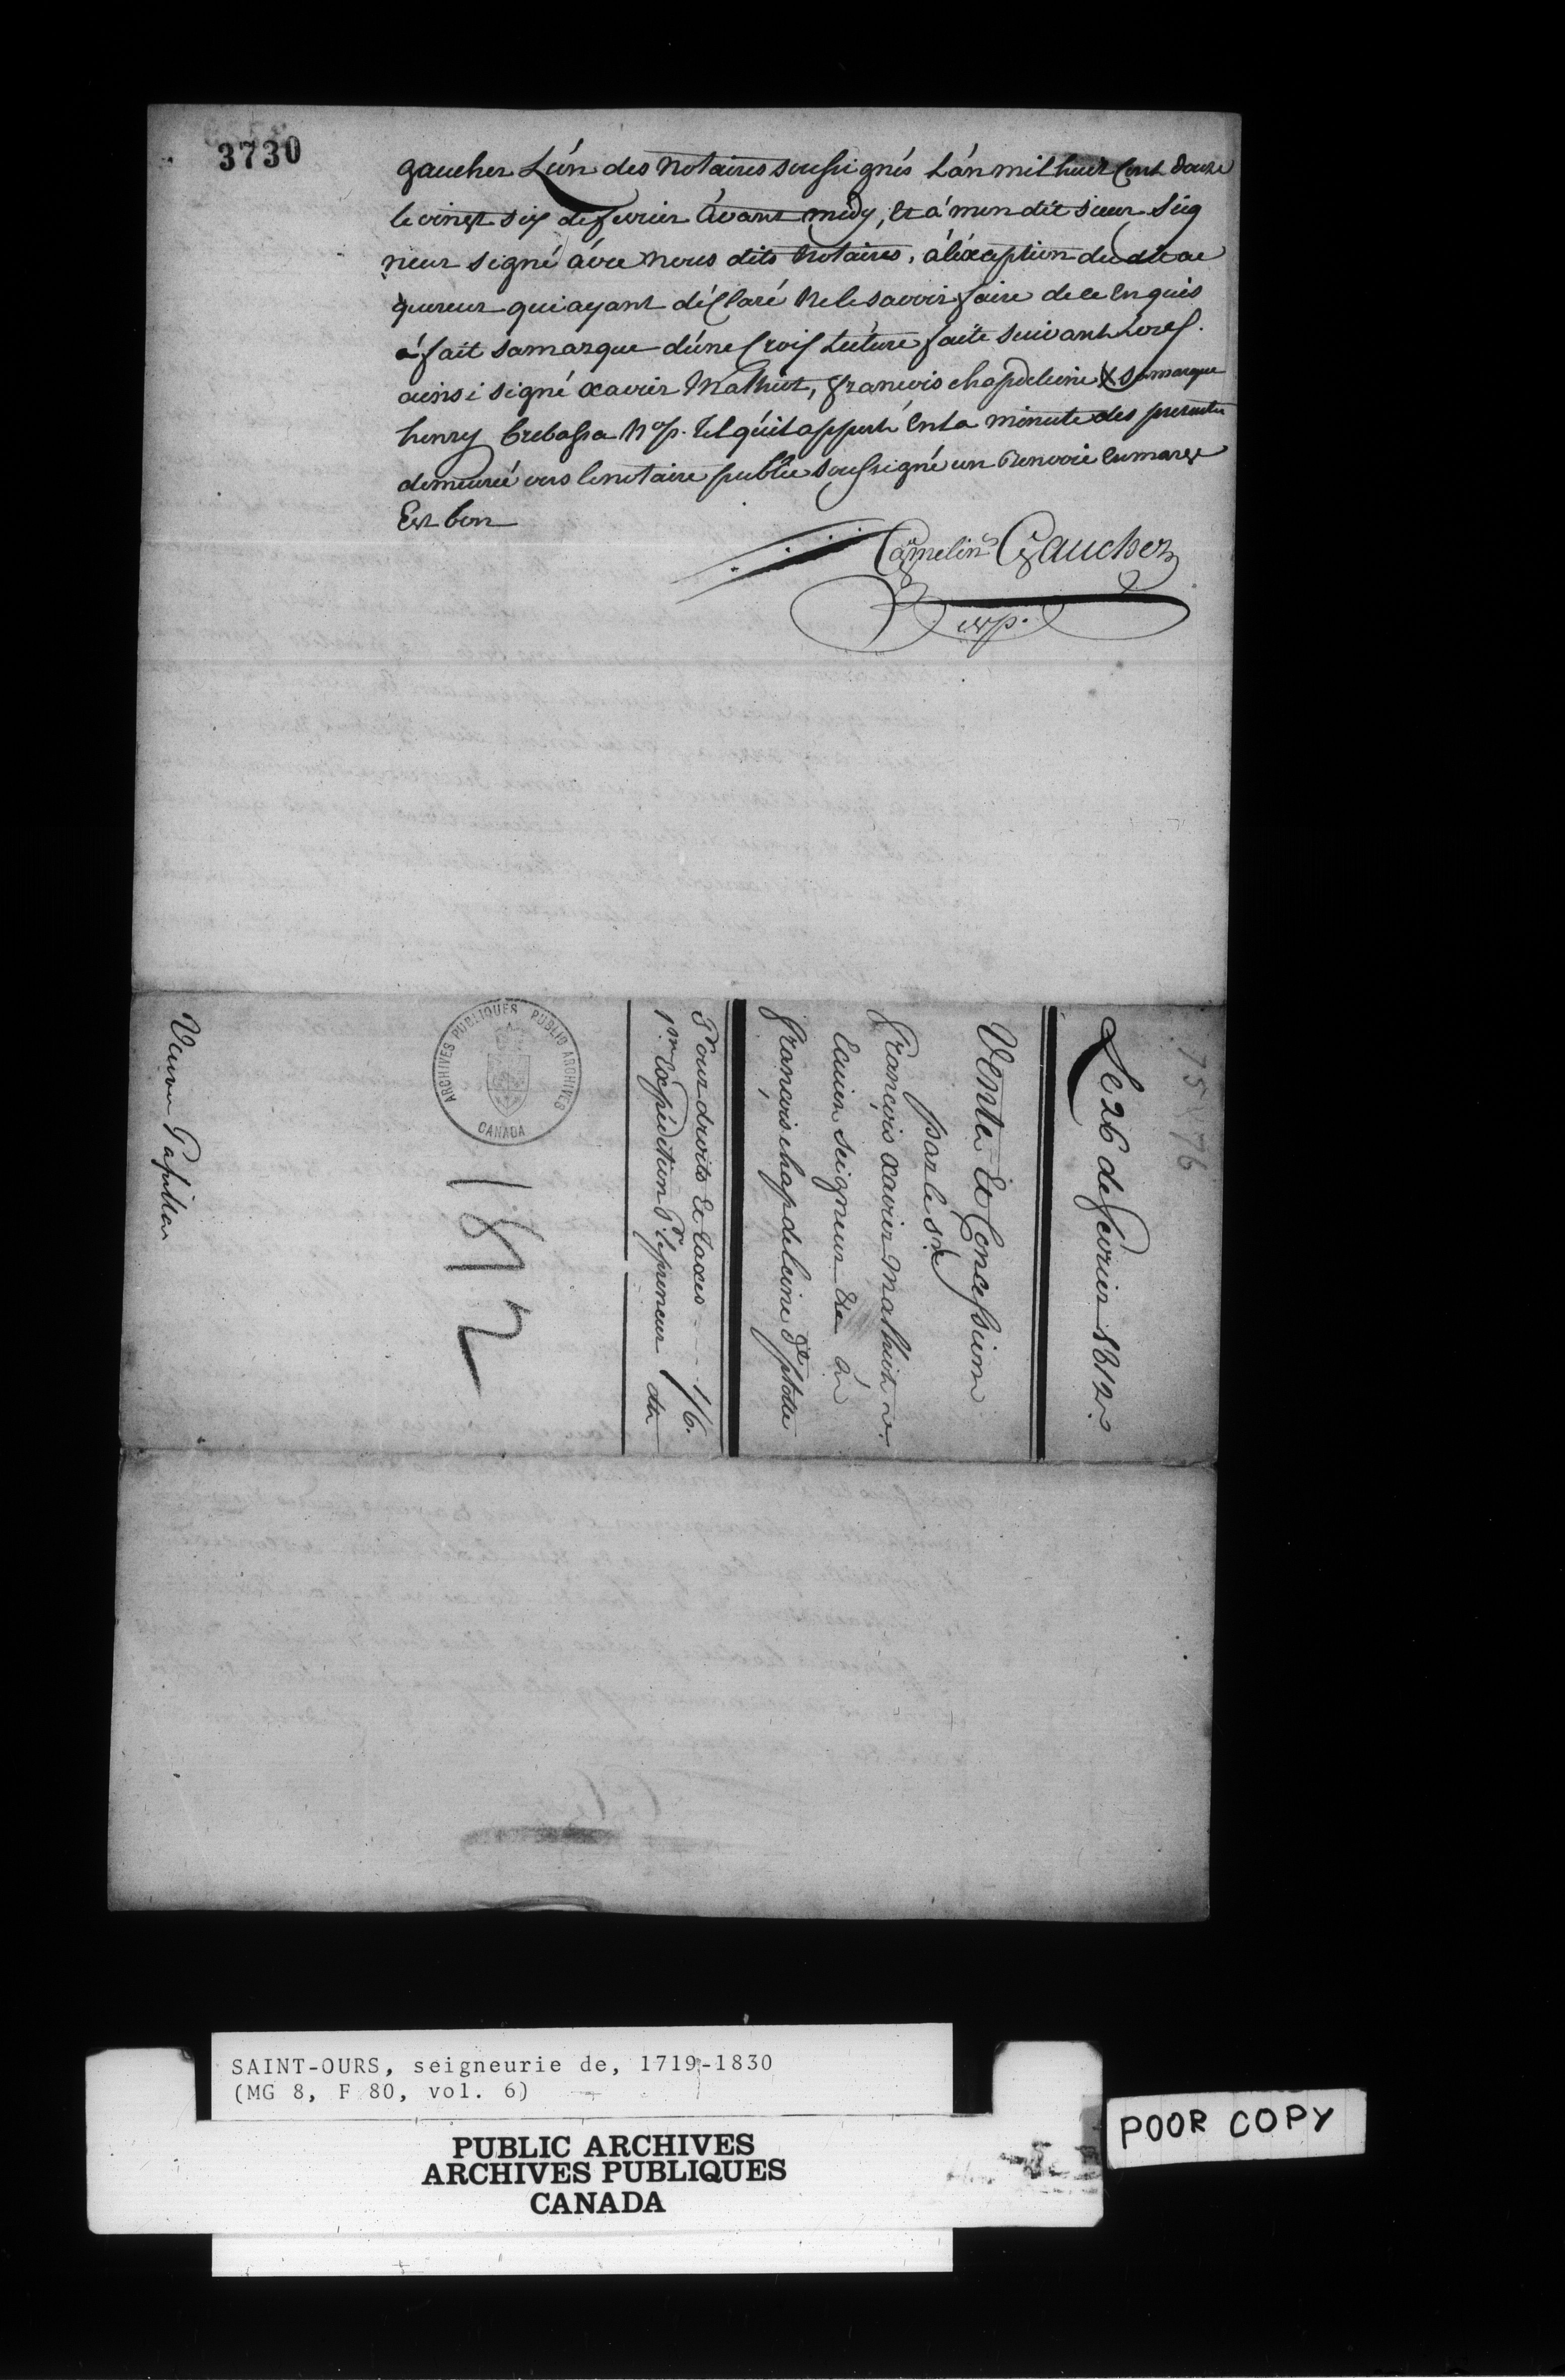 3730
gaucher L'ún des Notaires soussignés L'án mil huit Cent douze
le vingt six de fevrier Avant midy, et á mon dit sieur Seig
neur signé ávec nous dits Notaires, á léxception dudit ac
quereur qui ayant déClaré Ne le savoir faire de ce Enquis
á fait sa marque d'úne Croix Lecture faite suivant L'ord.
ainsi signé xavier Malhiot, francois chapdeleine X sa marque
henry Crebassa N.p. tel qu'il appert En la minute des presentes
demeurée vers le notaire public soussigné un Renvoie En marge
Est bon
Gamelin Gaucher
N.p.
75 76
Le 26 de fevrier 1812
Vente Et Concession
par le Sr
François xavier Malhiot
Ecuier Seigneur &c á
François chapdeleine
Pour droits et taxes 1/6.
1re Expédition Pr le preneur
ARCHIVES PUBLIQUES PUBLIC ARCHIVES
CANADA
1812
SAINT-OURS, seigneurie de, 1719-1830
(MG 8, F 80, vol. 6)
PUBLIC ARCHIVES
ARCHIVES PUBLIQUES
CANADA
POOR COPY